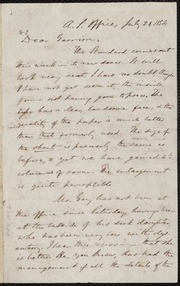 A. S. Office, July 21, 1854
Dear Garrison,
The Standard comes out
this week in new dress. It will
look very neat I have no doubt though
I have not yet seen it, the inside
form not having gone to press. The
type has a clean, handsome face, & the
quality of the paper is much better
than that formerly used. The size of
the sheet is precisely the same as
before, & yet we have gained
columns of room. The enlargement
is quite perceptible.
Mr. Gay has not been at
the Office since Saturday, having been
at the bedside of his sick daughter,
who has been very low with dys-
entery. I hear this
is better. As you know, has had the
management of all the details of the